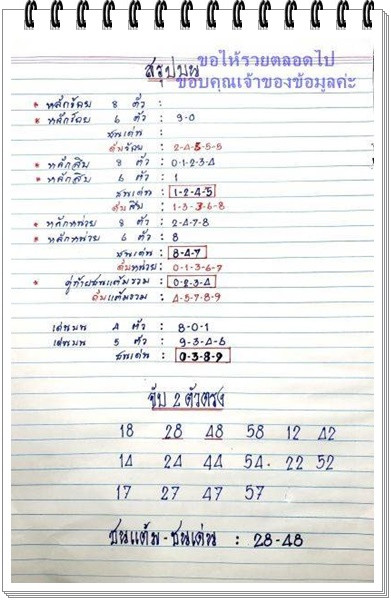 ขอให้รวยตลอดไป
สรุปบน
ขอบคุณเจ้าของข้อมูลค่ะ
* หลักร้อย 8 ตัว :
* หลักร้อย 6 ตัว : 9-0
ชนเด่น :
ดับร้อย : 2-4-5-5-5
* หลักสิบ 8 ตัว : 0-1-2-3-4
* หลักสิบ 6 ตัว : 1
ชนเด่น : 1-2-4-5
ดับสิบ : 1-3-3-6-8
* หลักหน่วย 8 ตัว : 2-4-7-8
* หลักหน่วย 6 ตัว : 8
ชนเด่น : 8-4-7
ดับหน่วย : 0-1-3-6-7
* คู่ท้ายชนแต้มรวม : 0-2-3-4
ดับแต้มรวม : 4-5-7-8-9
เด่นบน 4 ตัว : 8-0-1
เด่นบน 5 ตัว : 9-3-4-6
ชนเด่น : 0-3-8-9
จับ 2 ตัวตรง
18 28 48 58 12 42
14 24 44 54 22 52
17 27 47 57
ชนแต้ม-ชนเด่น : 28-48